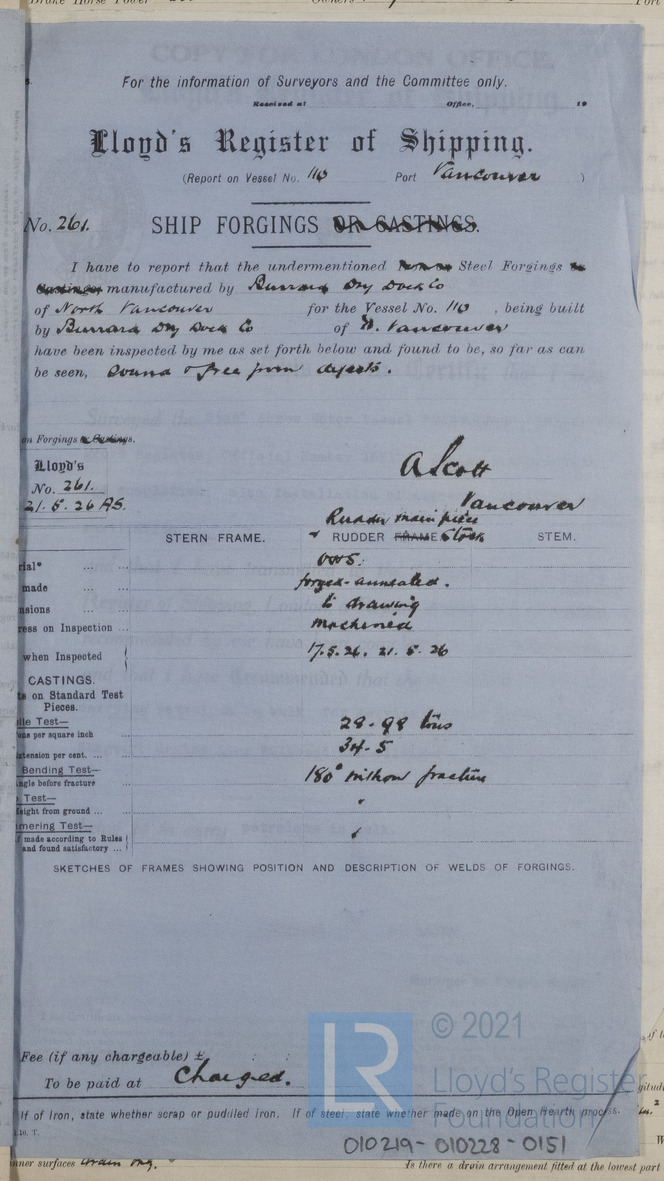 For the information of Surveyors and the Committee only.
Received at Office, 19
Lloyd's Register of Shipping.
(Report on Vessel No. 110 Port Vancouver )
No. 261. SHIP FORGINGS OR CASTINGS.
I have to report that the undermentioned Steel Forgings or
Castings manufactured by Burrard Dry Dock Co
of North Vancouver for the Vessel No. 110, being built
by Burrard Dry Dock Co of N. Vancouver
have been inspected by me as set forth below and found to be, so far as can
be seen, sound & free from defects.
on Forgings or Castings.
Lloyd's
No. 261.
21.5.26 A.S.
A Scott
Vancouver
Rudder main piece
STERN FRAME. RUDDER FRAME Stock STEM.
rial* ... ...
made ... ... forged-annealed.
nsions ... ... to drawing
ress on Inspection ... machined
when Inspected 17.5.26, 21.5.26
CASTINGS.
ts on Standard Test
Pieces.
ile Test—
ons per square inch ... 28.98 tons
xtension per cent. ... 34.5
Bending Test—
ngle before fracture ... 180° without fracture
Test—
eight from ground ...
mering Test—
f made according to Rules
and found satisfactory ...
SKETCHES OF FRAMES SHOWING POSITION AND DESCRIPTION OF WELDS OF FORGINGS.
Fee (if any chargeable) £ : :
To be paid at Charged.
If of Iron, state whether scrap or puddled iron. If of steel, state whether made on the Open Hearth process.
LR
© 2021
Lloyd's Register
Foundation
010219-010228-0151
nner surfaces
Is there a drain arrangement fitted at the lowest part